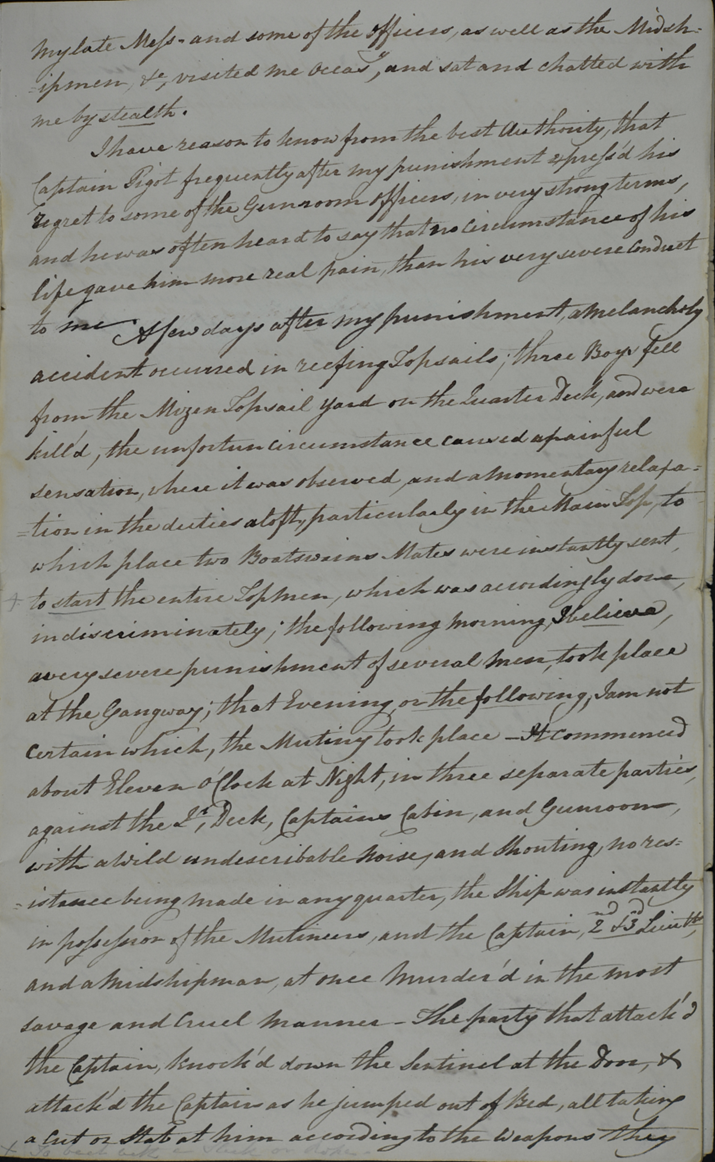 my late Mess- and some of the officers, as well as the Midsh-
-ipmen, &c, visited me Occasy, and sat and chatted with
me by stealth.
I have reason to know from the best Authority, that
Captain Pigot frequently after my punishment express'd his
regret to some of the Gunroom officers, in very strong terms,
and he was often heard to say that no Circumstance of his
life gave him more real pain, than his very severe Conduct
to me A few days after my punishment, a melancholy
accident occurred in reefing Topsails; three Boys fell
from the Mizen Topsail yard on the Quarter Deck, and were
kill'd, the unfortun circumstance caused a painful
sensation, where it was observed, and a momentary relaxa=
=tion in the duties aloft, particularly in the Main Top, to
which place two Boatswains Mates were instantly sent,
+ to start the entire Topmen, which was accordingly done,
indiscriminately; the following morning, I believe,
a very severe punishment of several men, took place
at the Gangway; that Evening or the following, I am not
certain which, the Mutiny took place - It commenced
about Eleven O'Clock at Night, in three separate parties,
against the Qr, Deck, Captains Cabin, and Gunroom,
with a Wild undescribable Noise, and Shouting, no res=
=istance being made in any quarter, the Ship was instantly
in possession of the Mutineers, and the Captain, 2nd & 3rd Lieutts,
and a Midshipman, at once Murder'd in the most
savage and Cruel Manner - The party that attack'd
the Captain, Knock'd down the Sentinel at the Door, &
attack'd the Captain as he jumped out of Bed, all taking
a Cut or Stab at him according to the Weapons they